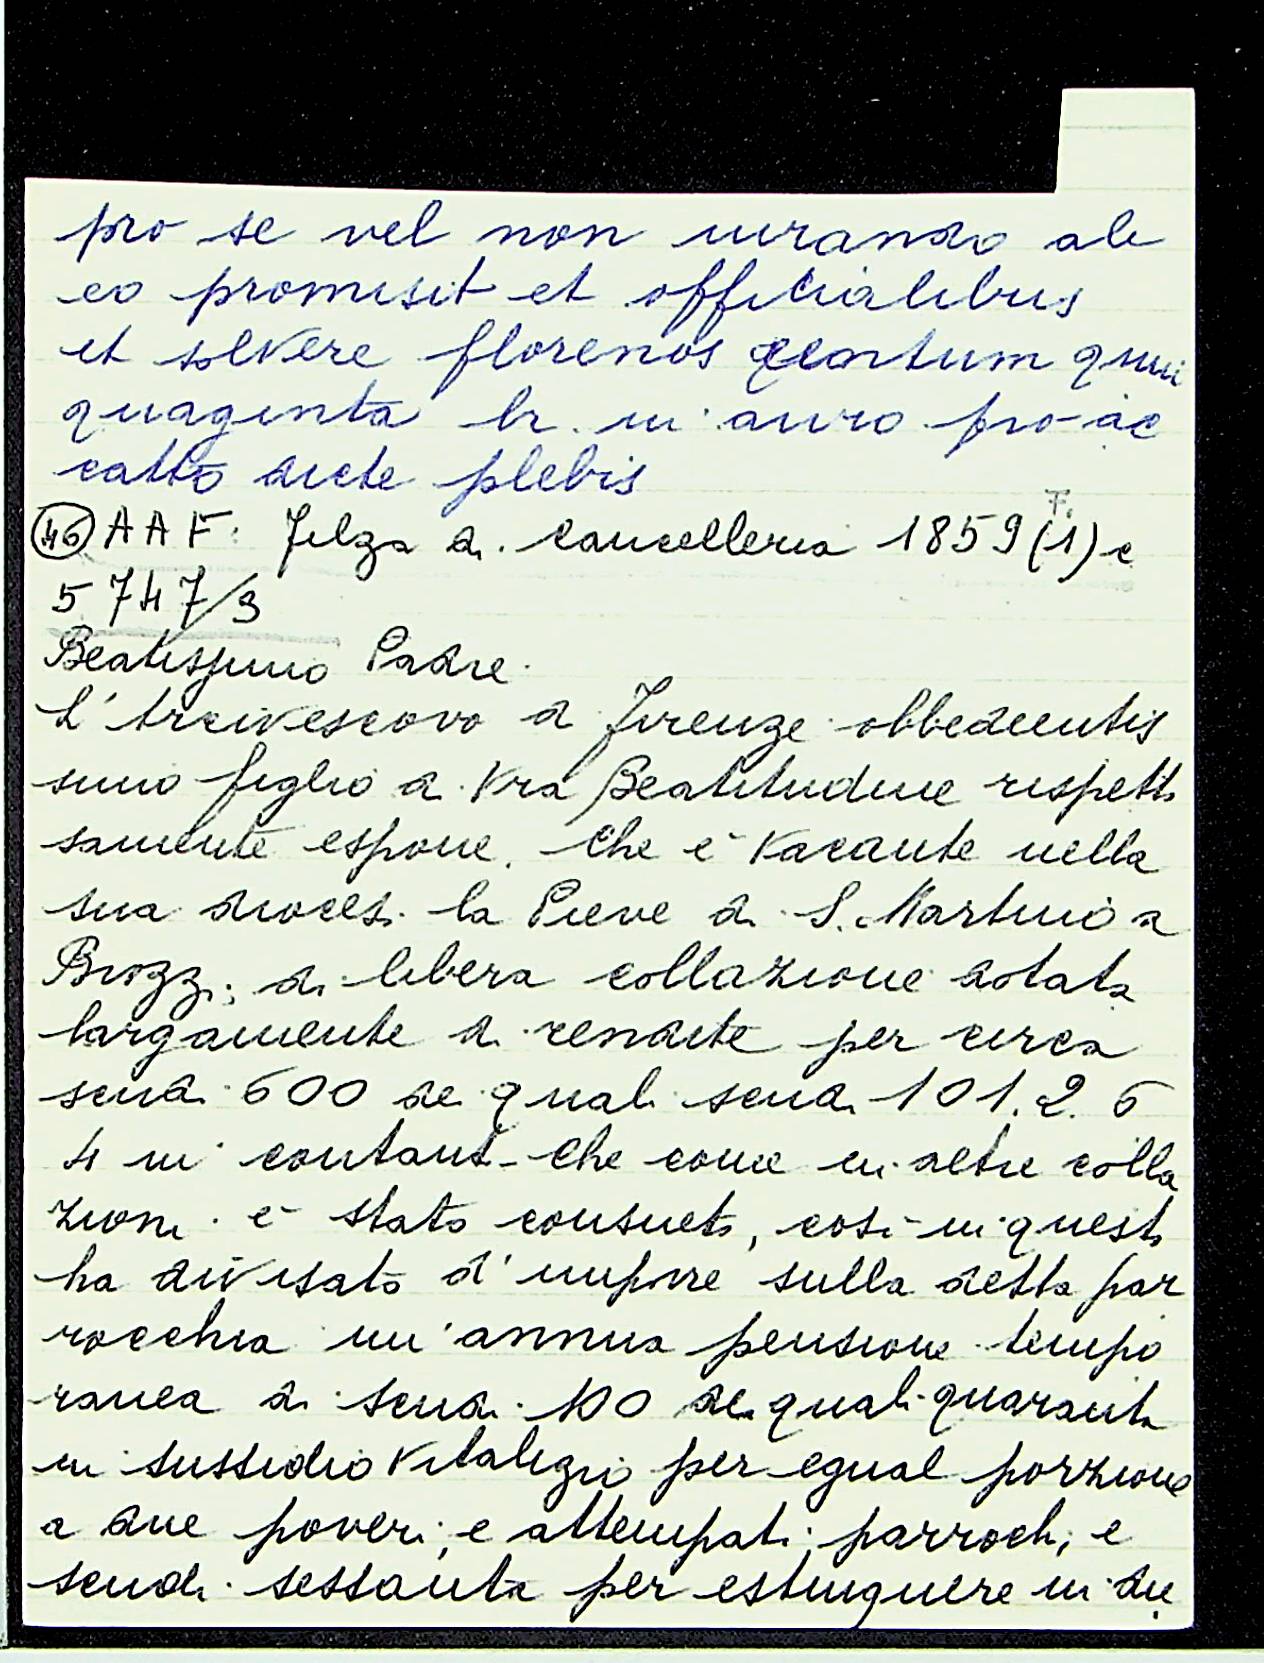 pro se vel non iurando ab
eo promisit et officialibus
et solvere florenos centum quin
quaginta br. in auro pro ac
catto dicte plebis
(46) AAF. Filza di Cancelleria 1859 (1) c
5747/9
Beatissimo Padre.
L'Arcivescovo di Firenze obbedientis
simo figlio di Vra Beatitudine rispetto
samente espone. Che è vacante nella
sua diocesi la Pieve di S. Martino a
Brozzi; di libera collazione dotata
largamente di rendite per circa
scudi 600 de quali scudi 101. 2. 6
4 in contanti - Che come in altre colla
zioni è stato consueto, così in questo
ha divisato d'imporre sulla detta par
rocchia un'annua pensione tempo
ranea di scudi 100 de quali quaranta
in sussidio vitalizio per egual porzione
a due poveri, e attempati parrochi, e
scudi sessanta per estinguere in due